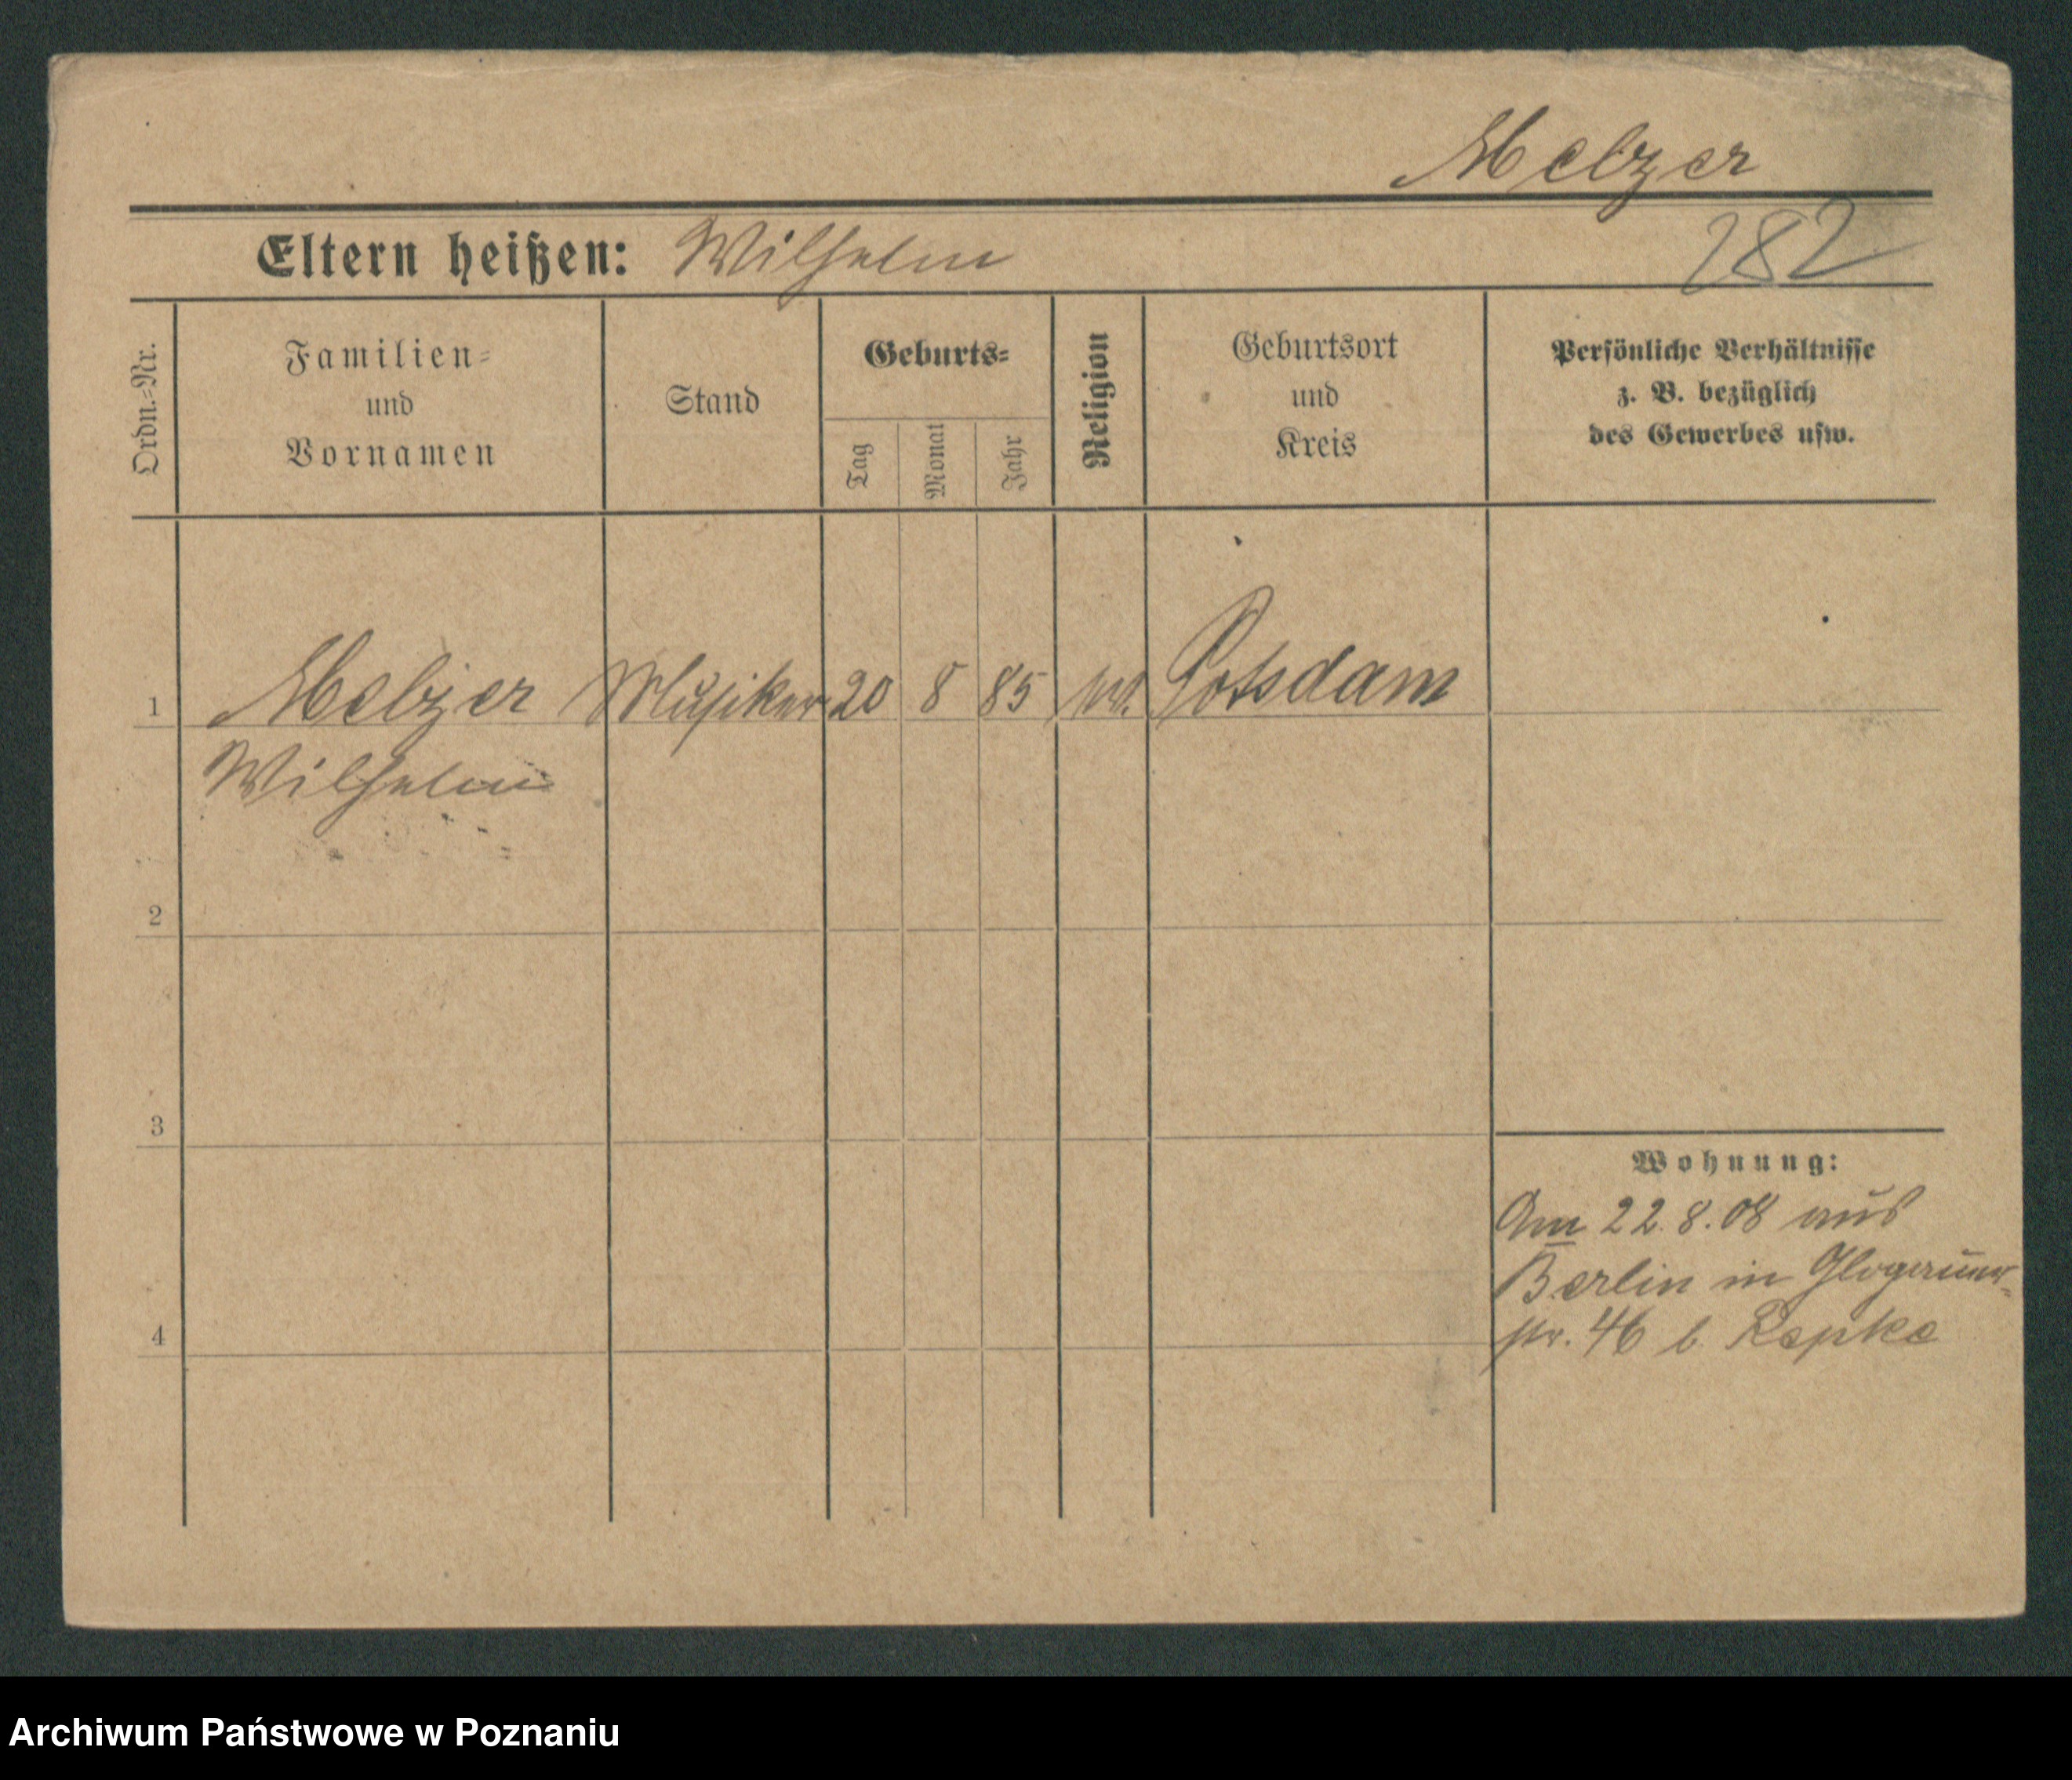 Melzer
Eltern heißen: Wilhelm
282
Ordn.=Nr.
Familien=
und
Vornamen
Stand
Geburts=
Tag
Monat
Jahr
Religion
Geburtsort
und
Kreis
Persönliche Verhältnisse
z. B. bezüglich
des Gewerbes usw.
1 Melzer Musiker 20 8 85 Potsdam
Wilhelm
2
3
Wohnung:
Am 22.8.08 aus
Berlin in Glogauer-
4
str. 46 b. Repke
Archiwum Państwowe w Poznaniu